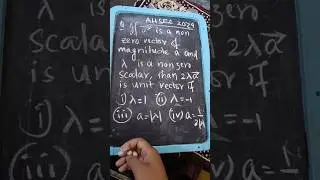 AHSEC 2029
Q. If a⃗ is a non
zero vector of
magnitude a and
λ is a non zero
scalar, than 2λa⃗
is unit vector if
i) λ=1 ii) λ=-1
iii) a=|λ| iv) a=1/2|λ|